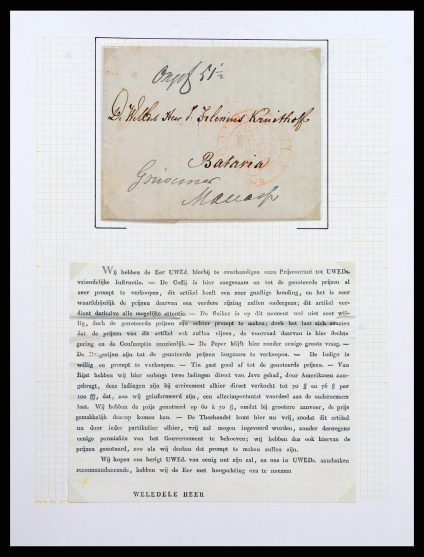 Batavia
Wij hebben de Eer UWEd. hierbij te overhandigen onze Prijscourant tot UWEDs.
vriendelijke instructie. — De Coffij is hier aangenaam en tot de genoteerde prijzen al
zeer prompt te verkoopen, dit artikel heeft een zeer gunstige houding, en het is zeer
waarschijnlijk de prijzen daarvan een verdere rijzing zullen ondergaan; dit artikel ver-
dient derhalve alle mogelijke attentie. — De Suiker is op dit moment wel niet zeer wil-
lig, doch de genoteerde prijzen zijn echter prompt te maken; doch het laat zich aanzien
dat de prijzen van dit artikel ook zullen rijzen, de voorraad daarvan is hier slechts
gering en de Consumptie aanzienlijk. — De Peper blijft hier zonder eenige groote vraag. —
De Drogerijen zijn tot de genoteerde prijzen langzaam te verkoopen. — De Indigo is
willig en prompt te verkoopen. — Tin gaat goed af tot de genoteerde prijzen. — Van
Rijst hebben wij hier onlangs twee ladingen direct van Java gehad, door Amerikanen aan-
gebragt, deze ladingen zijn bij arrivement alhier direct verkocht tot 70 ß en 76 ß per
100 ℔, dat, zoo wij geïnformeerd zijn, een allerimportantst voordeel aan de ondernemers
laat. Wij hebben de prijs genoteerd op 60 à 70 ß, omdat bij grootere aanvoer, de prijs
gemakkelijk daarop komen kan. — De Theehandel komt hier nu vrij, zoodat dit artikel
nu door ieder partikulier alhier, vrij zal mogen ingevoerd worden, zonder deswegens
eenige permissien van het Gouvernement te behoeven; wij hebben dus ook hiervan de
prijzen genoteerd, zoo als wij denken dat prompt te maken zullen zijn.
Wij hopen ons berigt UWEd. van eenig nut zijn zal, en ons in UWEDs. aandenken
recommanderende, hebben wij de Eer met hoogachting ons te noemen
WELEDELE HEER